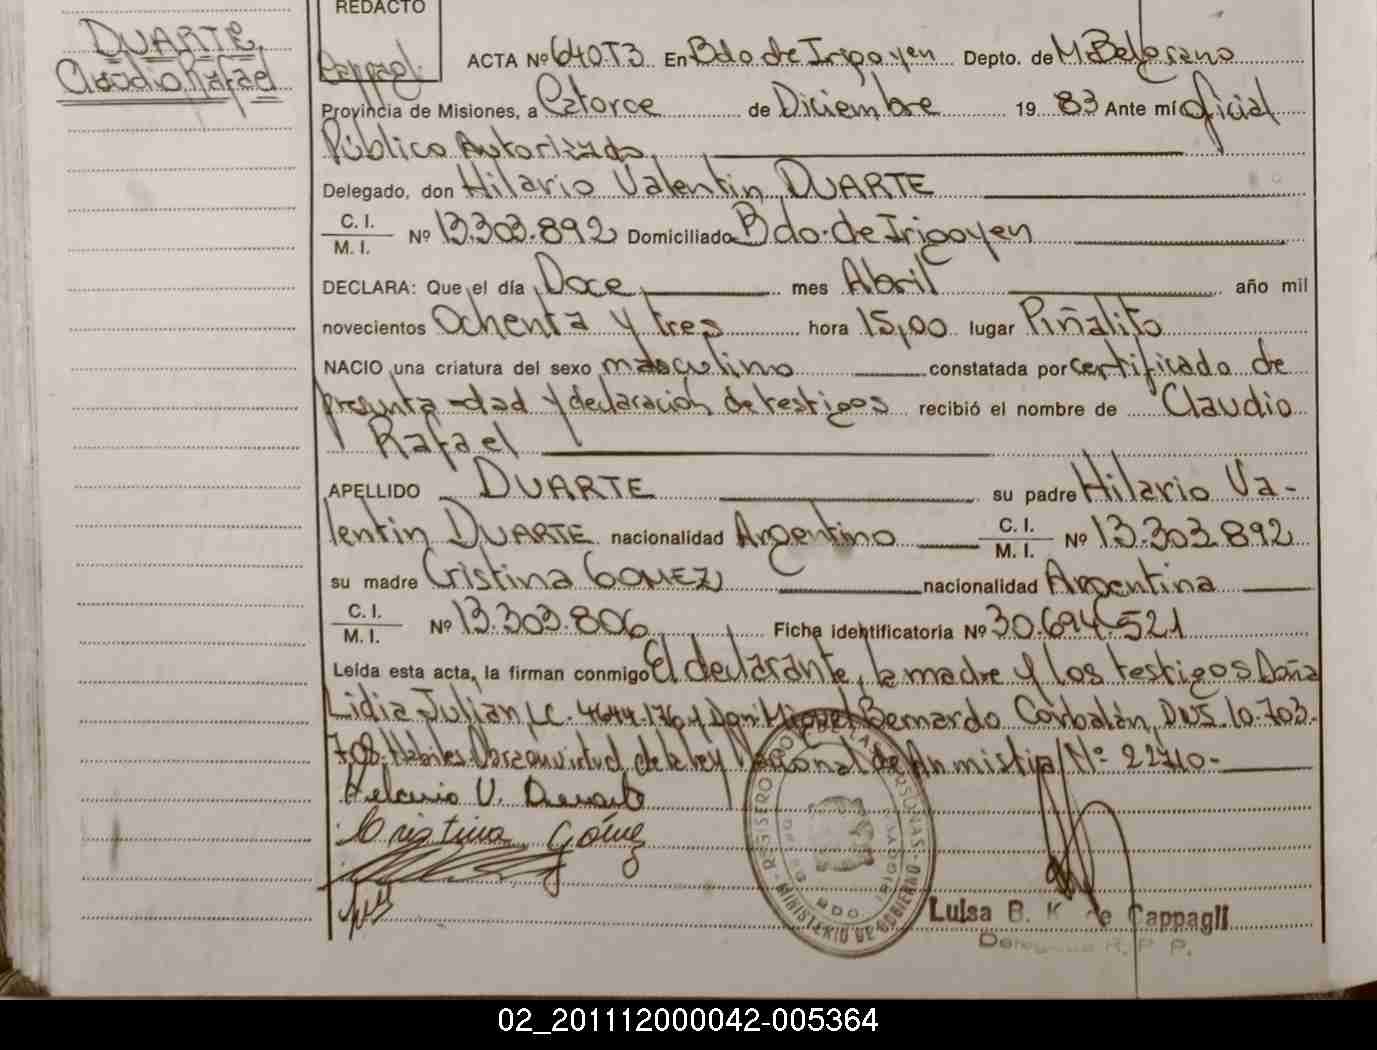 REDACTO
DUARTE,
Claudio Rafael
Cappagli
ACTA Nº 640T3 En Bdo de Irigoyen Depto. de M Belgrano
Provincia de Misiones, a Catorce de Diciembre 19 83 Ante mí Oficial
Público Autorizado,
Delegado, don Hilario Valentin DUARTE
C. I.
M. I. Nº 13.303.892 Domiciliado Bdo. de Irigoyen
DECLARA: Que el día Doce mes Abril año mil
novecientos Ochenta y tres hora 15,00 lugar Piñalito
NACIO una criatura del sexo masculino constatada por certificado de
presunta edad y declaración de testigos recibió el nombre de Claudio
Rafael
APELLIDO DUARTE su padre Hilario Va-
lentin DUARTE nacionalidad Argentino C. I.
M. I. Nº 13.303.892
su madre Cristina GOMEZ nacionalidad Argentina
C. I.
M. I. Nº 13.303.806 Ficha identificatoria Nº 30.694.521
Leída esta acta, la firman conmigo El declarante, la madre y los testigos Doña
Lidia Julian, LC. 4644.176 y Don Miguel Bernardo Corbalán, DNI 10.703.
708. Habiles Obra en virtud de la ley Nacional de Anmistia/Nº 22710-
V. Duarte
Cristina Gómez
REGISTRO DE LAS PERSONAS - MINISTERIO DE GOBIERNO
BDO. IRIGOYEN
Luisa B. K de Cappagli
R. P. P.
02_201112000042-005364